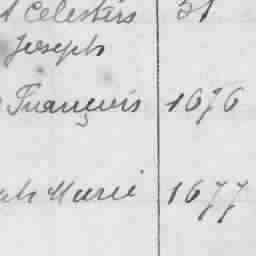 Celestins 31
Joseph
François 1676
Marie 1677